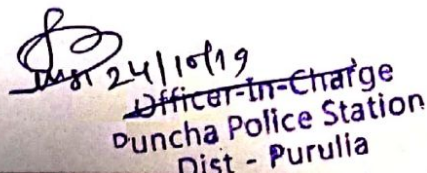 24/10/19
Officer-In-Charge
Puncha Police Station
Dist - Purulia